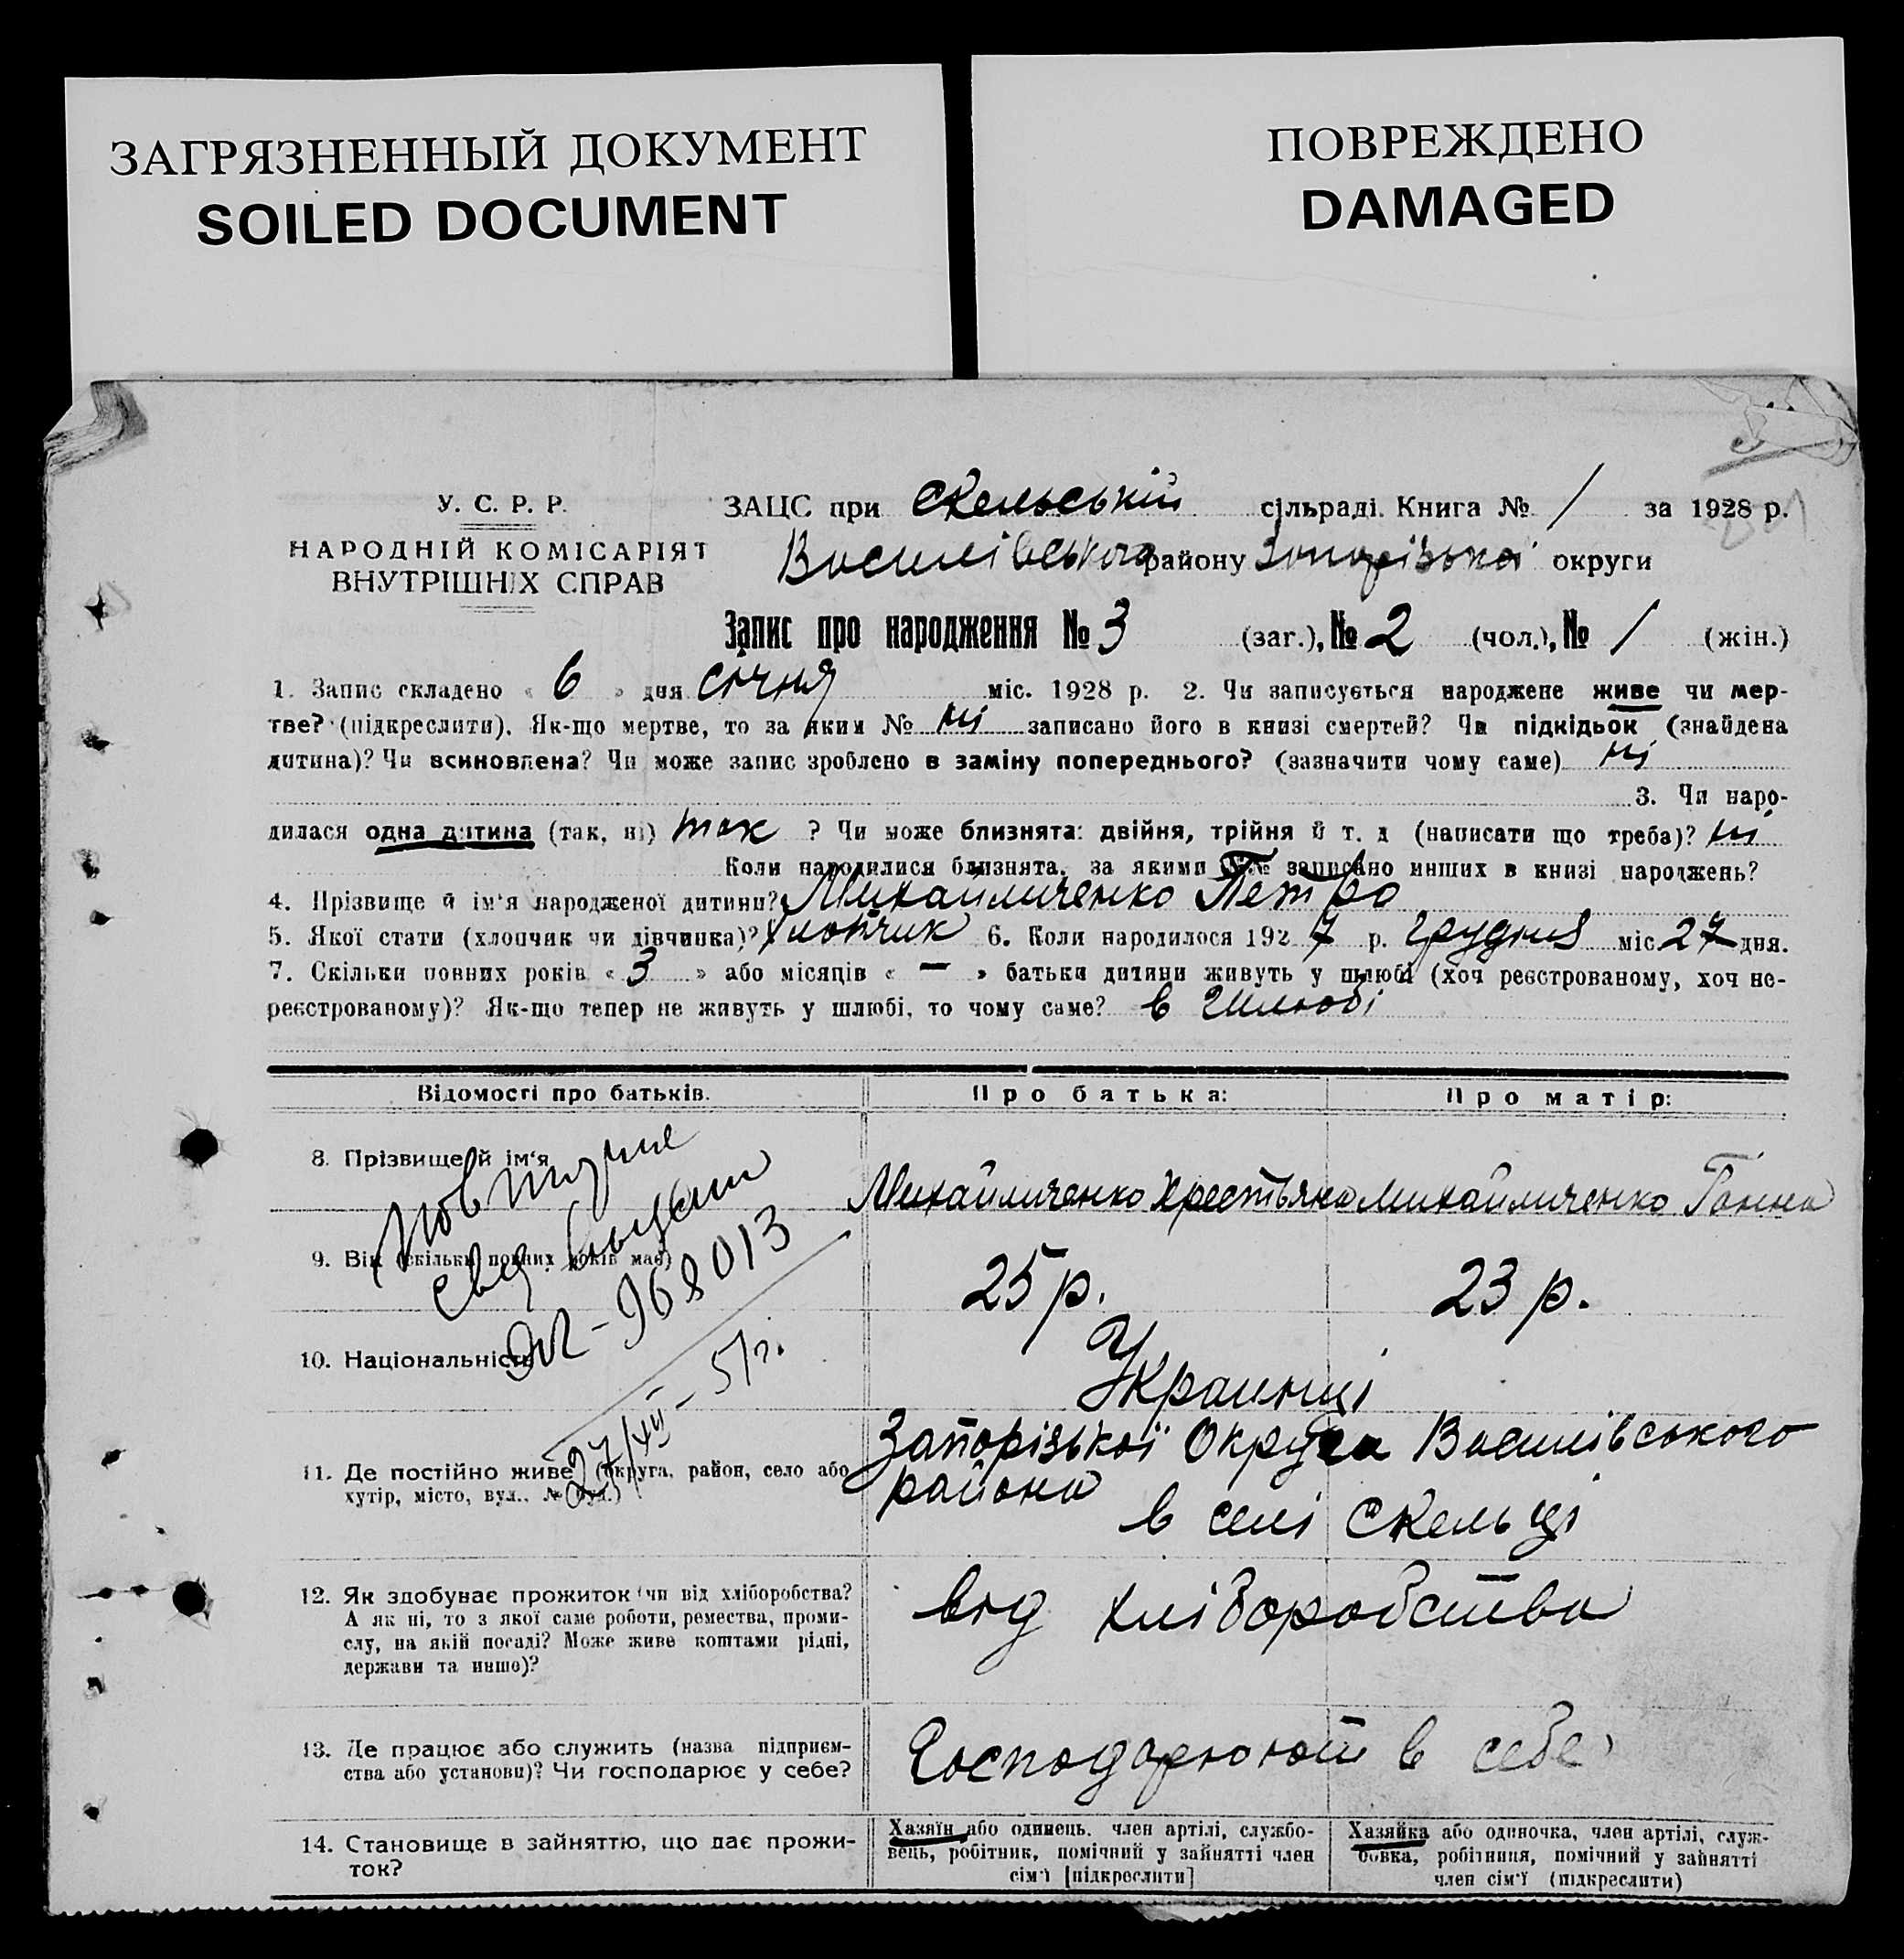 ЗАГРЯЗНЕННЫЙ ДОКУМЕНТ
SOILED DOCUMENT
ПОВРЕЖДЕНО
DAMAGED
У. С. Р. Р.
НАРОДНІЙ КОМІСАРІЯТ
ВНУТРІШНІХ СПРАВ
ЗАЦС при Скельській сільраді. Книга № 1 за 1928 р.
Василівського району Запорізької округи
Запис про народження № 3 (заг.), № 2 (чол.), № 1 (жін.)
1. Запис складено « 6 » дня січня міс. 1928 р. 2. Чи записується народжене живе чи мер-
тве? (підкреслити). Як-що мертве, то за яким № ні записано його в книзі смертей? Чи підкідьок (знайдена
дитина)? Чи всиновлена? Чи може запис зроблено в заміну попереднього? (зазначити чому саме) ні
3. Чи наро-
дилася одна дитина (так, ні) так ? Чи може близнята: двійня, трійня й т. д (написати що треба)? ні
Коли народилися близнята, за якими №№ записано инших в книзі народжень?
4. Прізвище й ім'я народженої дитини? Михайличенко Петро
5. Якої стати (хлопчик чи дівчинка)? Хлопчик 6. Коли народилося 1927 р. грудня міс. 27 дня.
7. Скільки повних років « 3 » або місяців « — » батьки дитини живуть у шлюбі (хоч реєстрованому, хоч не-
реєстрованому)? Як-що тепер не живуть у шлюбі, то чому саме? в шлюбі
Відомості про батьків.
Про батька:
Про матір:
8. Прізвище й ім'я
Михайличенко Хрестьян
Михайличенко Ганна
9. Вік (скільки повних років має)
25 р.
23 р.
10. Національність
Украинці
11. Де постійно живе (округа, район, село або
хутір, місто, вул., № буд.)
Запорізької Округа Василівського
района
в селі Скельці
Повторне
свід. выдано
968013
27/XII - 51 г.
12. Як здобуває прожиток (чи від хліборобства?
А як ні, то з якої саме роботи, ремества, проми-
слу, на якій посаді? Може живе коштами рідні,
держави та инше)?
від хліборобства
13. Де працює або служить (назва підприєм-
ства або установи)? Чи господарює у себе?
Господарюють в себе
14. Становище в зайняттю, що дає прожи-
ток?
Хазяїн або одинець, член артілі, службо-
вець, робітник, помічний у зайнятті член
сім'ї [підкреслити]
Хазяйка або одиночка, член артілі, служ-
бовка, робітниця, помічний у зайнятті
член сім'ї (підкреслити)